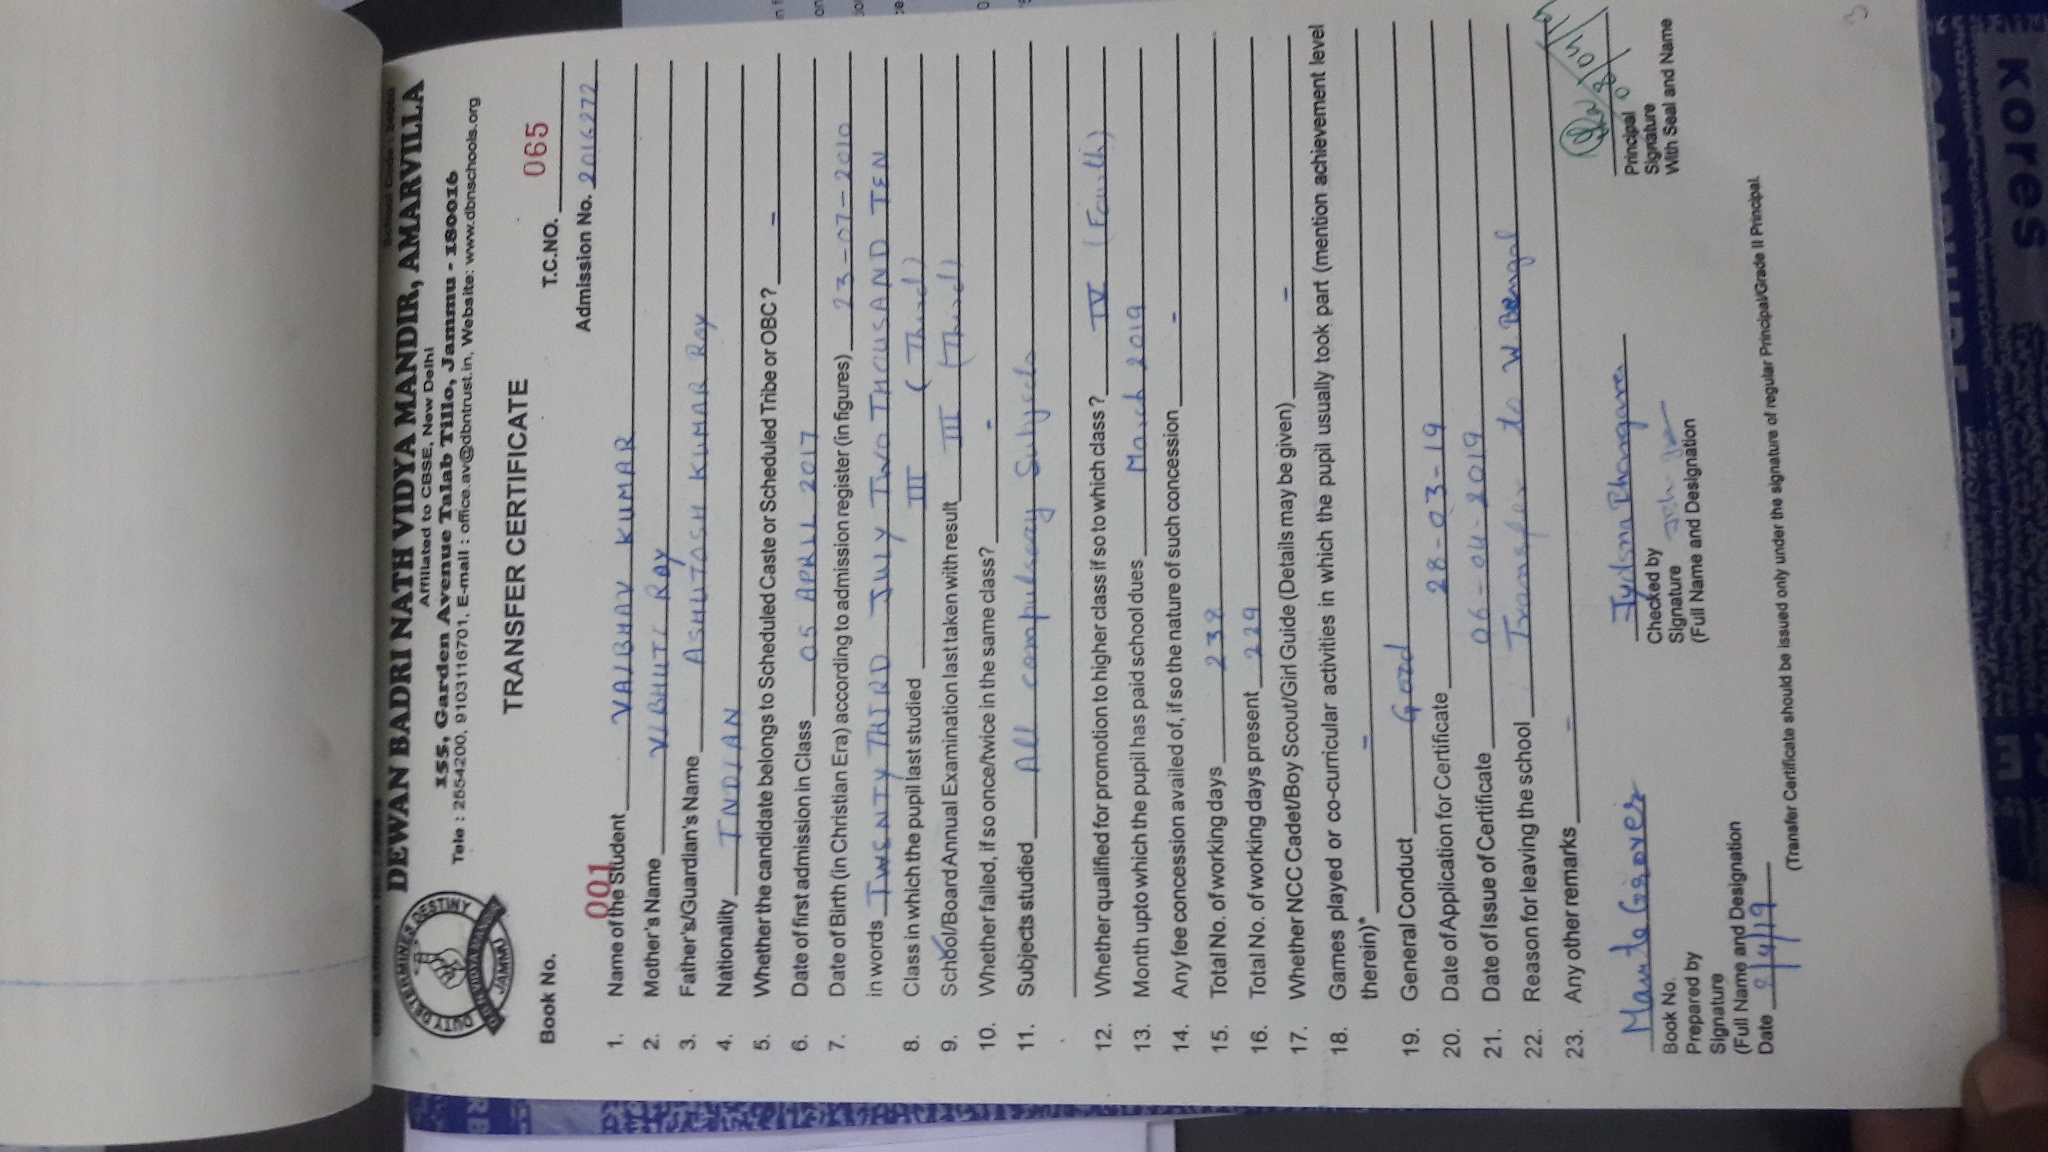 DEWAN BADRI NATH VIDYA MANDIR, AMARVILLA
Affiliated to CBSE, New Delhi
155, Garden Avenue Talab Tillo, Jammu - 180016
Tele : 2554200, 9103116701, E-mail : office.av@dbntrust.in, Website: www.dbnschools.org
DUTY DETERMINES DESTINY
JAMMU
TRANSFER CERTIFICATE
Book No. 001 T.C.NO. 065
Admission No. 2016272
1. Name of the Student VAIBHAV KUMAR
2. Mother's Name VIBHUTI RAY
3. Father's/Guardian's Name ASHUTOSH KUMAR RAY
4. Nationality INDIAN
5. Whether the candidate belongs to Scheduled Caste or Scheduled Tribe or OBC? -
6. Date of first admission in Class 05 APRIL 2017
7. Date of Birth (in Christian Era) according to admission register (in figures) 23-07-2010
in words TWENTY THIRD JULY TWO THOUSAND TEN
8. Class in which the pupil last studied III (Third)
9. School/Board Annual Examination last taken with result III (Third)
10. Whether failed, if so once/twice in the same class? -
11. Subjects studied All compulsory Subjects
12. Whether qualified for promotion to higher class if so to which class? IV (Fourth)
13. Month upto which the pupil has paid school dues March 2019
14. Any fee concession availed of, if so the nature of such concession -
15. Total No. of working days 238
16. Total No. of working days present 229
17. Whether NCC Cadet/Boy Scout/Girl Guide (Details may be given) -
18. Games played or co-curricular activities in which the pupil usually took part (mention achievement level
therein)* -
19. General Conduct Good
20. Date of Application for Certificate 28-03-19
21. Date of Issue of Certificate 06-04-2019
22. Reason for leaving the school Transfer to W Bengal
23. Any other remarks -
Book No.
Prepared by
Signature
(Full Name and Designation
Date 8/4/19
Checked by
Signature
(Full Name and Designation)
Principal
Signature
With Seal and Name
(Transfer Certificate should be issued only under the signature of regular Principal/Grade II Principal.
kores